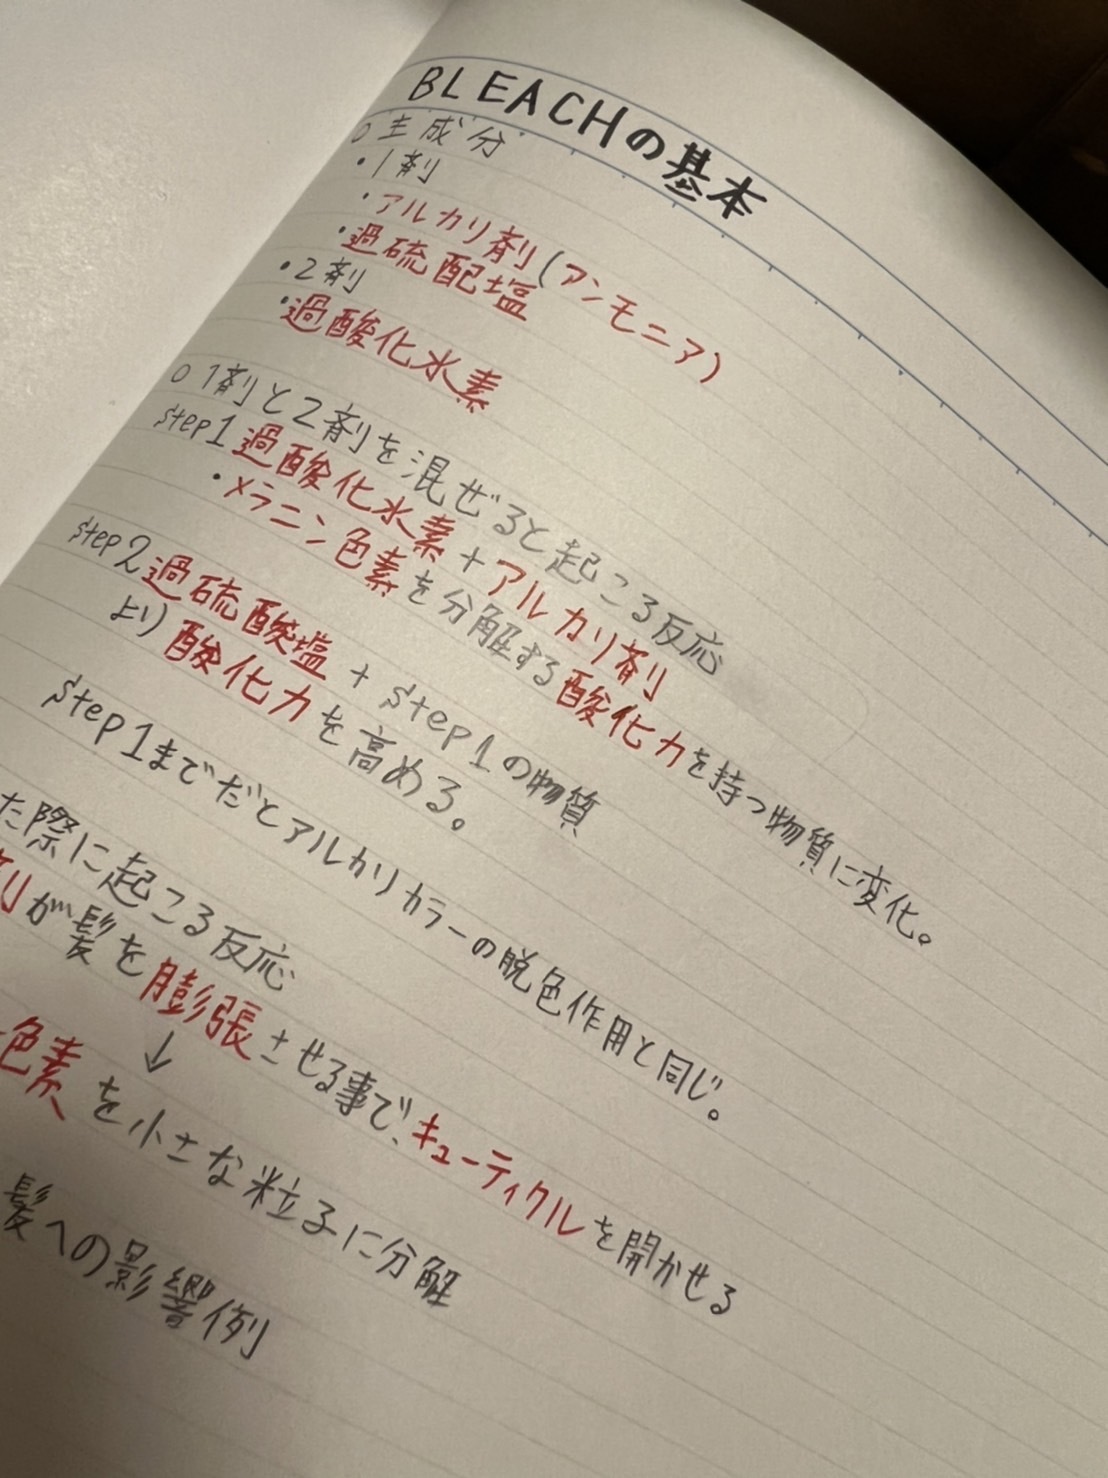 BLEACHの基本
○主成分
・1剤
・アルカリ剤(アンモニア)
・過硫配塩
・2剤
・過酸化水素
○1剤と2剤を混ぜると起こる反応
step1 過酸化水素+アルカリ剤
・メラニン色素を分解する酸化力を持つ物質に変化。
step2 過硫酸塩+step1の物質
より酸化力を高める。
step1までだとアルカリカラーの脱色作用と同じ。
た際に起こる反応
剤が髪を膨張させる事で、キューティクルを開かせる
↓
色素を小さな粒子に分解
髪への影響例